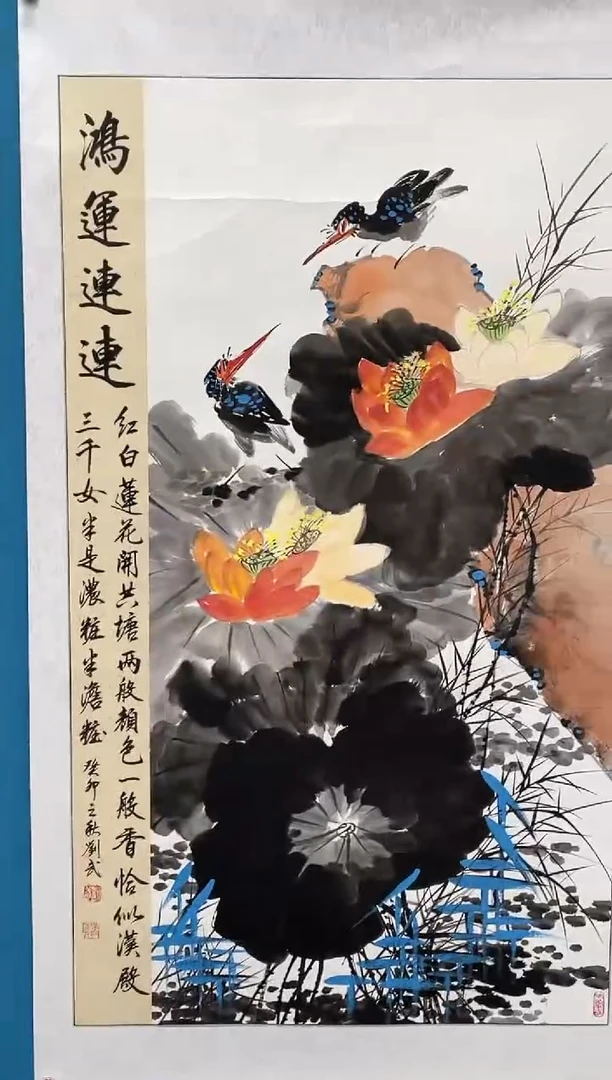 鴻運連連
红白蓮花開共塘两般顏色一般香恰似漢殿
三千女半是濃粧半澹粧癸卯之秋劉武